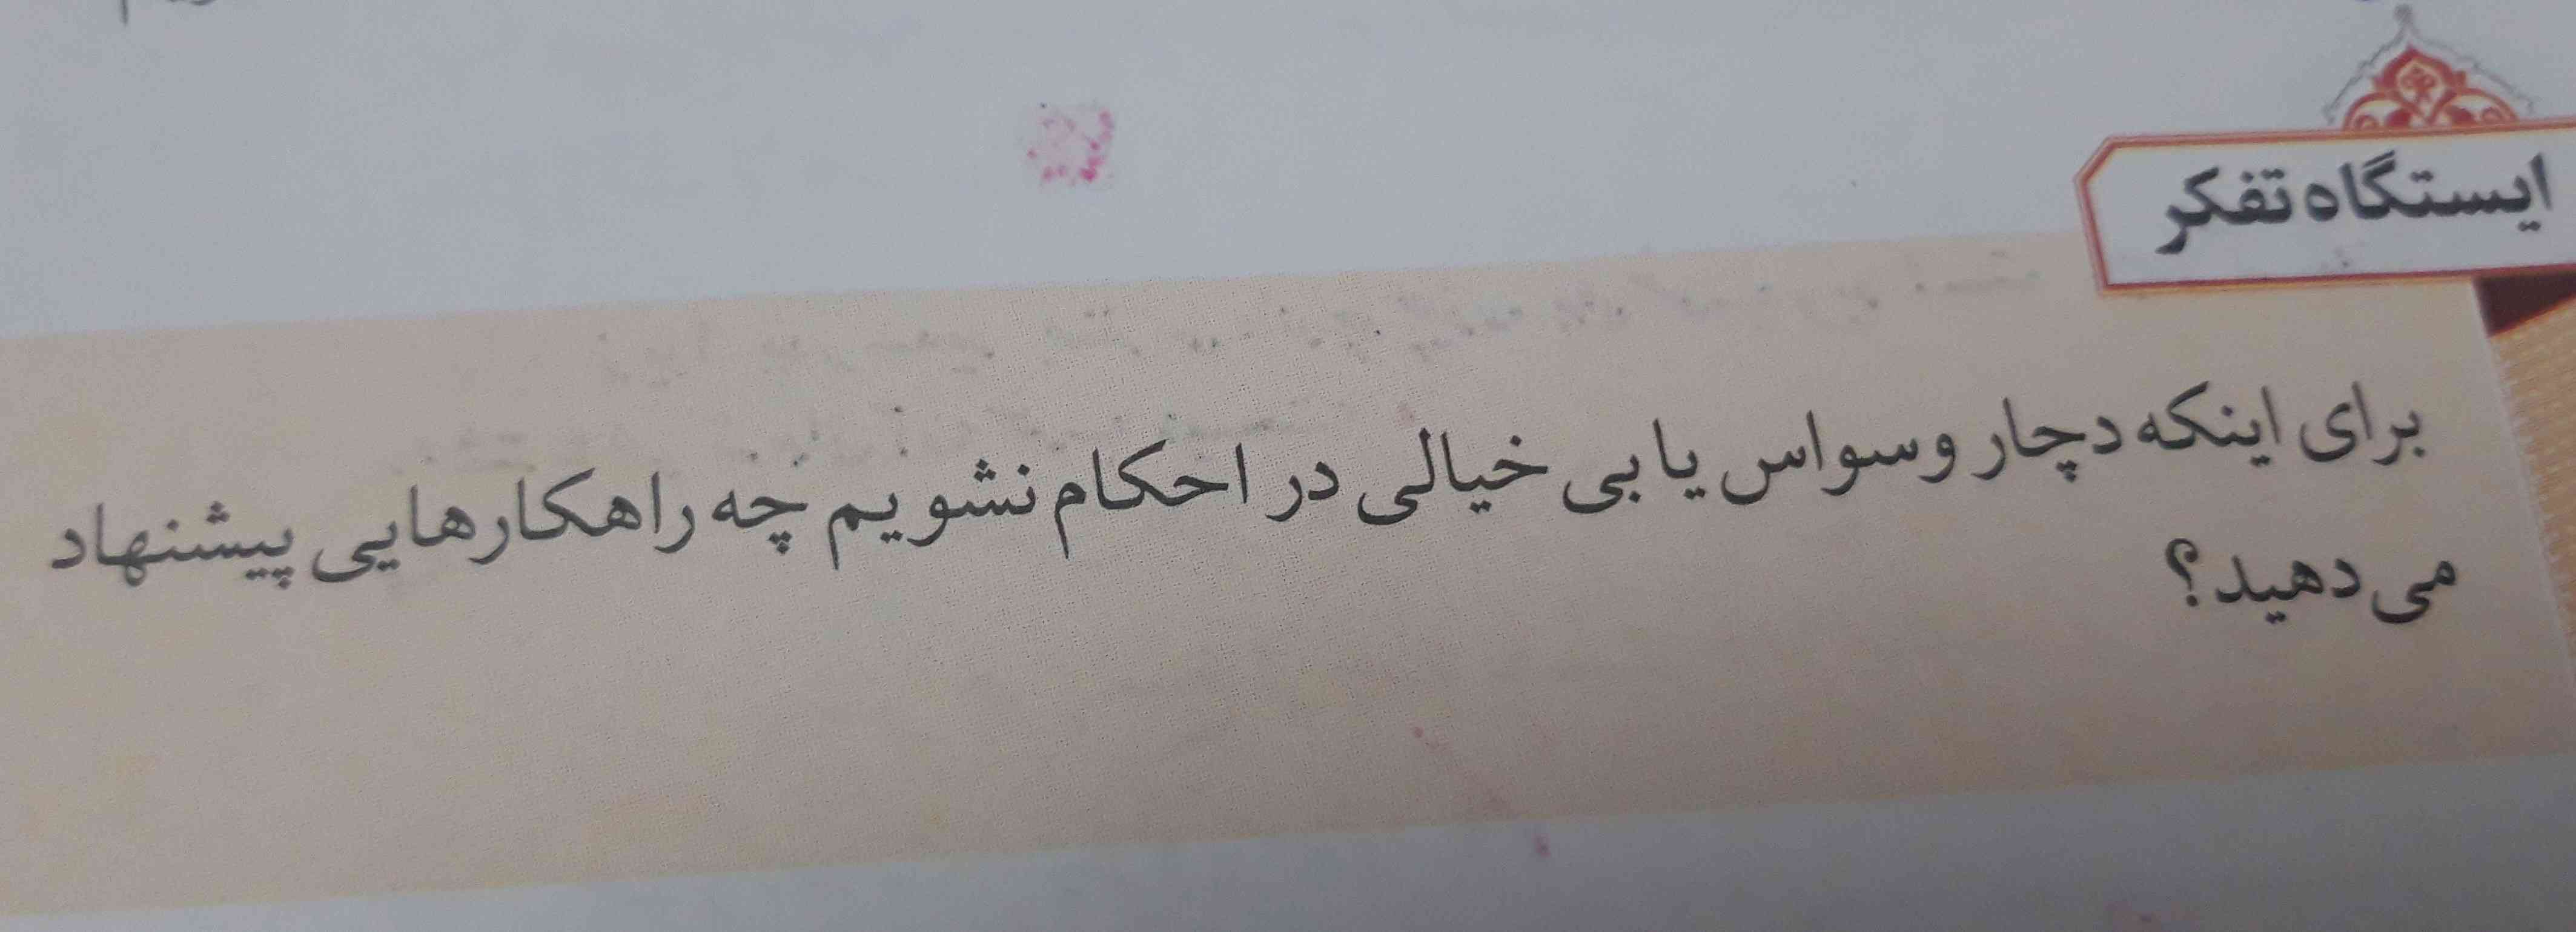 ایستگاه تفکر
برای اینکه دچار وسواس یا بی خیالی در احکام نشویم چه راهکارهایی پیشنهاد
می‌دهید؟